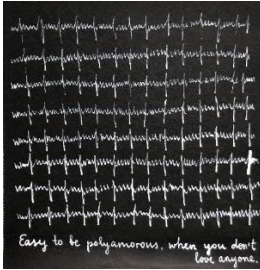 Easy to be polyamorous, when you don't
love anyone.